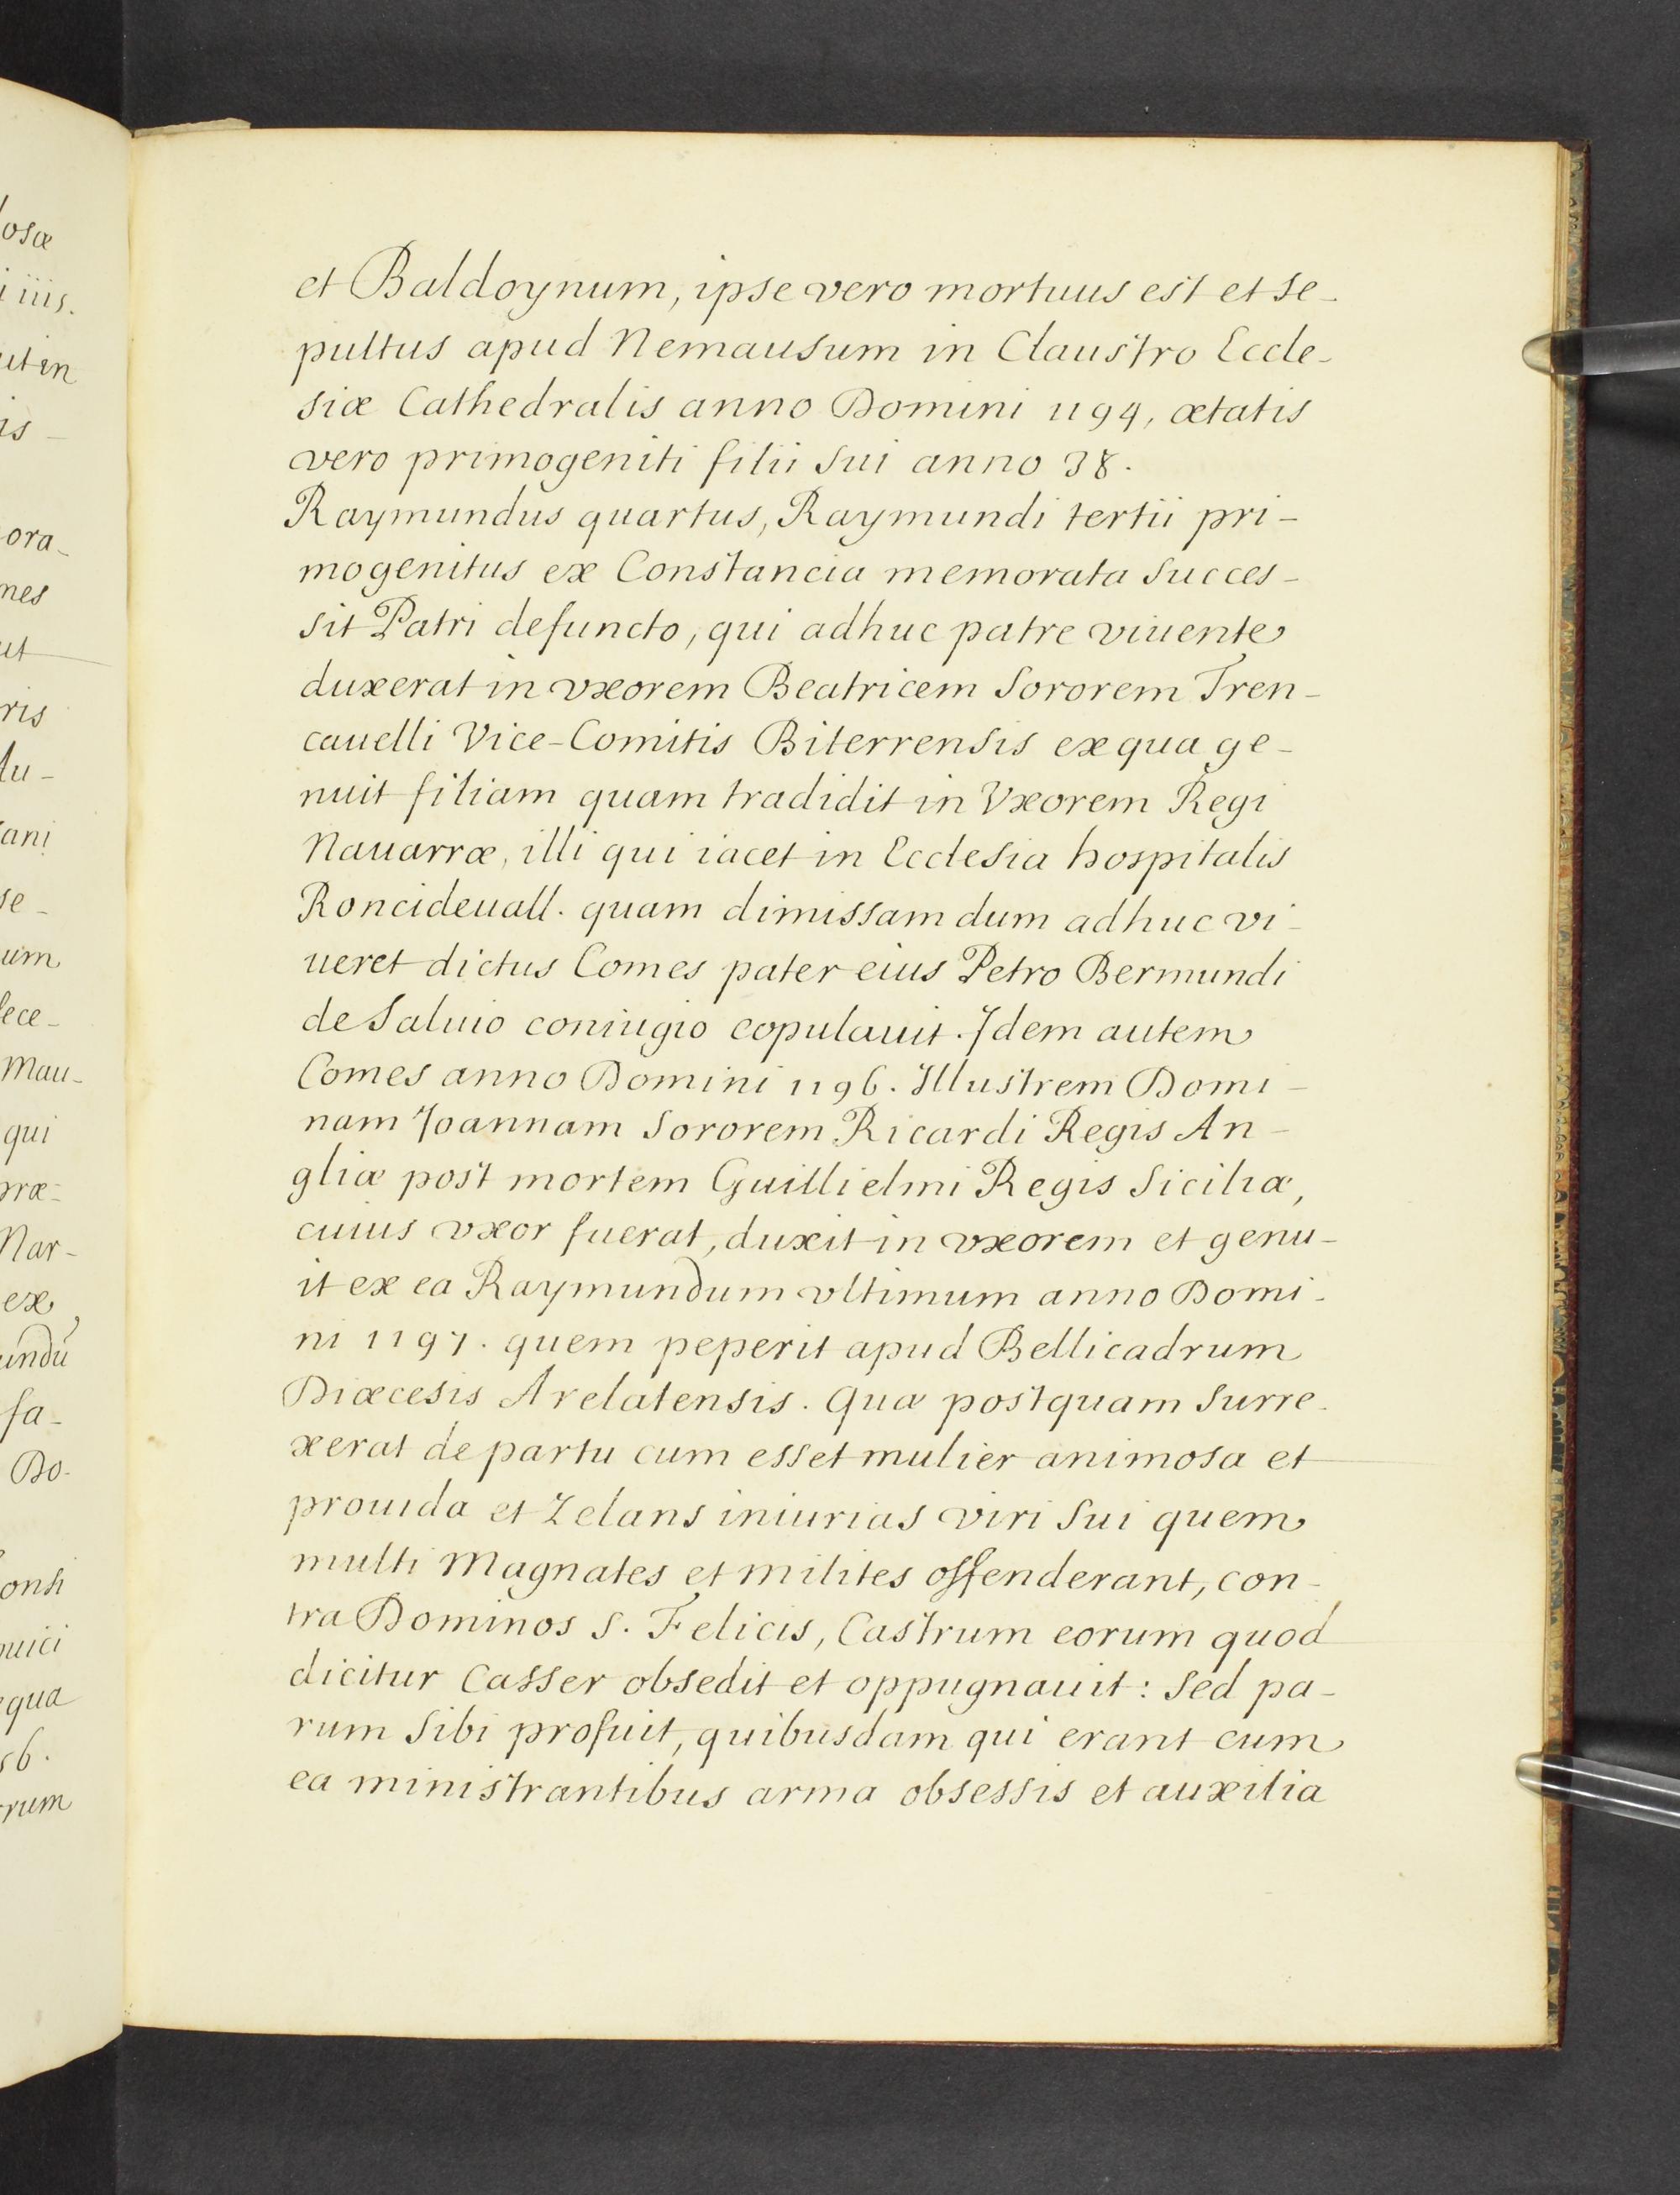 et Baldoynum, ipse vero mortuus est et se-
pultus apud Nemausum in Claustro Eccle-
siæ Cathedralis anno Domini 1194, ætatis
vero primogeniti filii sui anno 38.
Raymundus quartus, Raymundi tertii pri-
mogenitus ex Constancia memorata succes-
sit Patri defuncto, qui adhuc patre viuente
duxerat in vxorem Beatricem Sororem Tren-
cauelli Vice-Comitis Biterrensis ex qua ge-
nuit filiam quam tradidit in Vxorem Regi
Nauarræ, illi qui iacet in Ecclesia hospitalis
Roncideuall. quam dimissam dum adhuc vi-
ueret dictus Comes pater eius Petro Bermundi
de Saluio coniugio copulauit. Idem autem
Comes anno Domini 1196. Illustrem Domi-
nam Joannam Sororem Ricardi Regis An-
gliæ post mortem Guillielmi Regis Siciliæ,
cuius vxor fuerat, duxit in vxorem et genu-
it ex ea Raymundum vltimum anno Domi-
ni 1197. quem peperit apud Bellicadrum
Diæcesis Arelatensis. Quæ postquam surre-
xerat de partu cum esset mulier animosa et
prouida et zelans iniurias viri sui quem
multi Magnates et milites offenderant, con-
tra Dominos S. Felicis, Castrum eorum quod
dicitur Casser obsedit et oppugnauit: sed pa-
rum sibi profuit, quibusdam qui erant cum
ea ministrantibus arma obsessis et auxilia